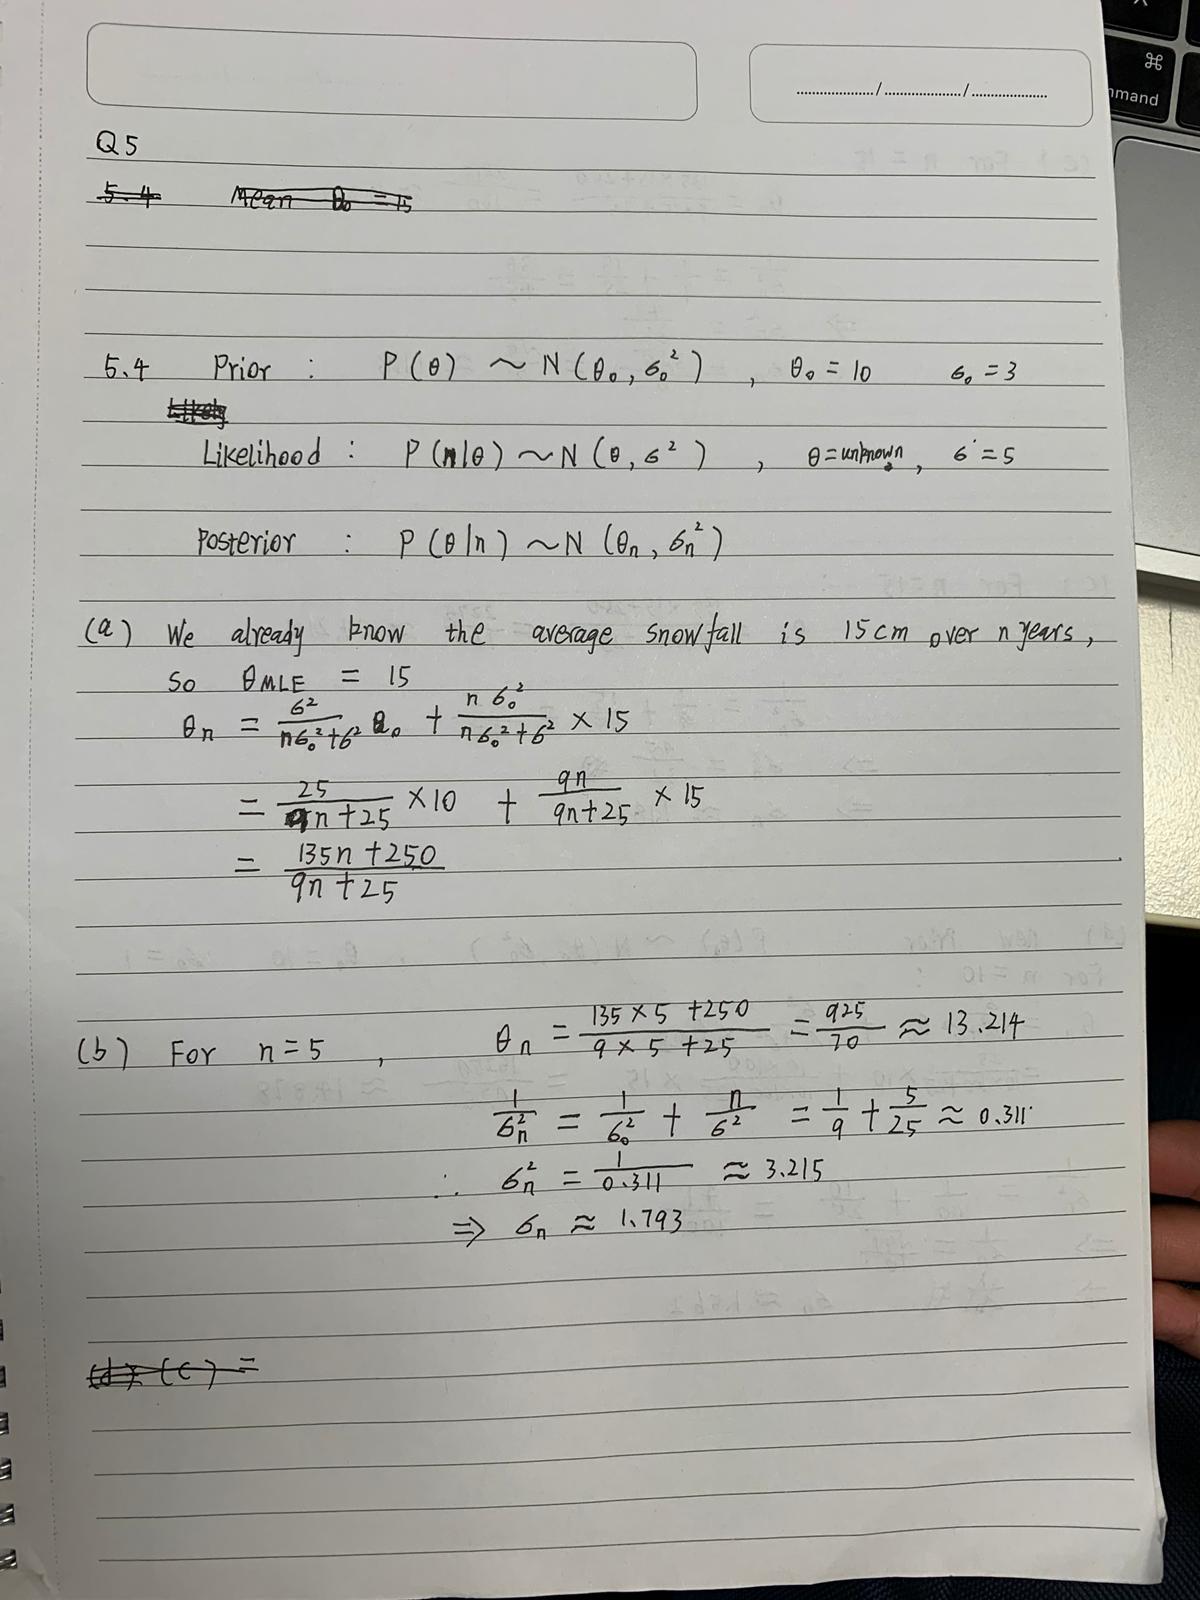 ⌘
mmand
Q5
5.4 Mean θ₀ = 15
5.4 Prior : P(θ) ~ N(θ₀, σ₀²) , θ₀ = 10 σ₀ = 3
Likely
Likelihood : P(n|θ) ~ N(θ, σ²) , θ = unknown, σ = 5
Posterior : P(θ|n) ~ N(θn, σn²)
(a) We already know the average snowfall is 15cm over n years,
so θMLE = 15
θn = σ²/(nσ₀²+σ²) θ₀ + nσ₀²/(nσ₀²+σ²) × 15
= 25/(9n+25) × 10 + 9n/(9n+25) × 15
= (135n+250)/(9n+25)
(b) For n=5 , θn = (135×5+250)/(9×5+25) = 925/70 ≈ 13.214
1/σn² = 1/σ₀² + n/σ² = 1/9 + 5/25 ≈ 0.311
∴ σn² = 1/0.311 ≈ 3.215
⇒ σn ≈ 1.793
(d) (c) =